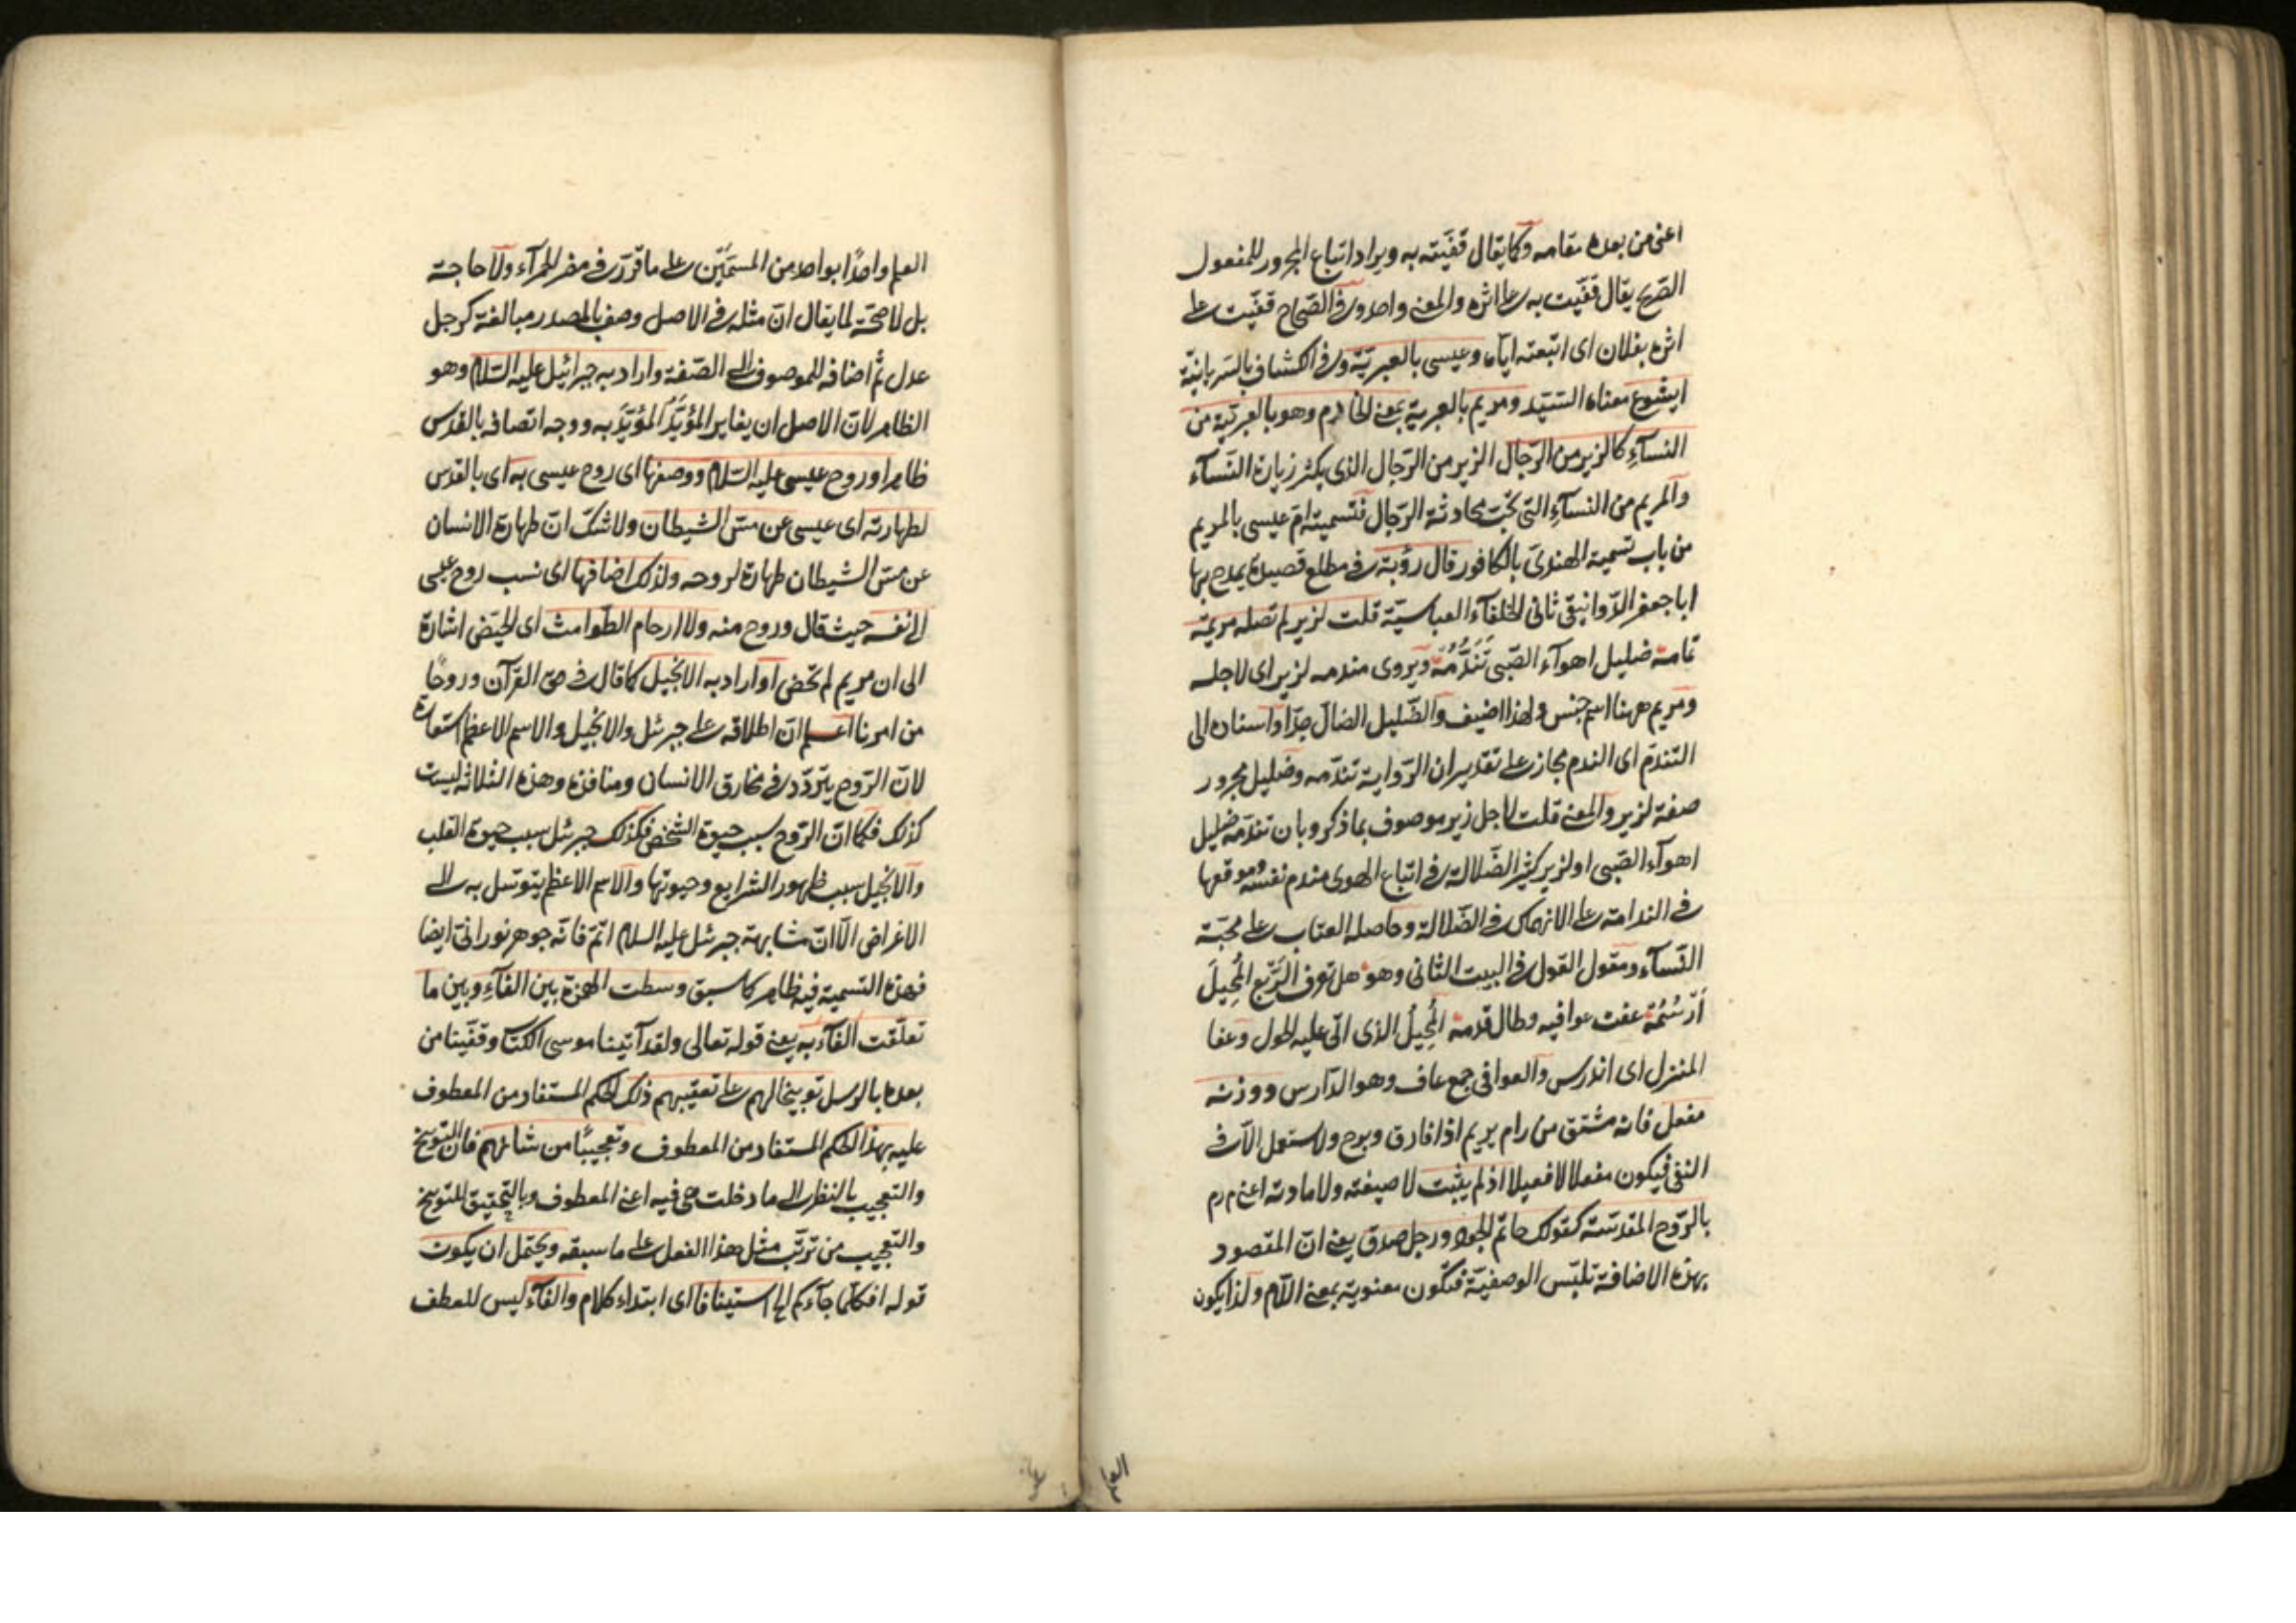 اعنى من بعده مقامه وكما يقال قفيته به ويراد اتباع المجرور للمفعول
الصريح يقال قفيت به على اثره والمعنى واحد وفى الصحاح قفيت على
اثره بفلان اى اتبعته اياه وعيسى بالعبرية وفى الكشاف بالسريانية
ايشوع معناه السيد ومريم بالعبرية بمعنى الخادم وهو بالعربية من
النسآء كالزير من الرجال الزير من الرجال الذى يكثر زيارة النسآء
والمريم من النسآء التى تحب محادثة الرجال فتسمية ام عيسى بالمريم
من باب تسمية الهندى بالكافور قال رؤبة فى مطلع قصيدة يمدح بها
ابا جعفر الدوانيقى ثانى الخلفآء العباسية قلت لزير لم تصله مريمه
تمامه ضليل اهوآء الصبى تَنَدُّمُه ويروى مندمه لزير اى لاجله
ومريم ههنا اسم جنس ولهذا اضيف والضليل الضال جدا واسناده الى
التندم اى الندم مجاز على تقدير ان الرواية تندمه وضليل مجرور
صفة لزير والمعنى قلت لاجل زير موصوف بما ذكر وبان تندمه ضليل
اهوآء الصبى او لزير كثير الضلالة فى اتباع الهوى مندم نفسه موقعها
فى الندامة على الانهماك فى الضلالة وحاصله العتاب على محبة
النسآء ومقول القول فى البيت الثانى وهو هل تعرف الربع المُحِيلَ
اَرْسُمُه عفت عوافيه وطال قدمه المُحِيلُ الذى اتى عليه الحول وعفا
المنزل اى اندرس والعوافى جمع عاف وهو الدارس ووزنه
مفعل فانه مشتق من رام يريم اذا فارق وبرح ولا يستعمل الا فى
النفى فيكون مفعلا لا فعيلا اذ لم يثبت لا صيغته ولا مادته اعنى م ر م
بالروح المقدسة كقولك حاتم الجود ورجل صدق يعنى ان المقصود
بهذه الاضافة تلبس الوصفية فتكون معنوية بمعنى اللام ولذا يكون
العلم واحدًا بواحد من المسمَّيَيْن على ما قرر فى مضر الحمرآء ولا حاجة
بل لا صحة لما يقال ان مثله فى الاصل وصف بالمصدر مبالغة كرجل
عدل ثم اضافه الموصوف الى الصفة واراد به جبرائيل عليه السلام وهو
الظاهر لان الاصل ان يغاير المؤيَّدُ المؤيَّدَ به ووجه اتصافه بالقدس
ظاهر او روح عيسى عليه السلام ووصفها اى روح عيسى به اى بالقدس
لطهارته اى عيسى عن مس الشيطان ولا شك ان طهارة الانسان
عن مس الشيطان طهارة لروحه ولذلك اضافها اى نسب روح عيسى
الى نفسه حيث قال وروح منه ولا ارحام الطوامث اى الحيض اشارة
الى ان مريم لم تحض او اراد به الانجيل كما قال فى حق القرآن وروحًا
من امرنا اعلم ان اطلاقه على جبرئل والانجيل والاسم الاعظم استعارة
لان الروح يتردد فى مخارق الانسان ومنافذه وهذه الثلاثة ليست
كذلك فكما ان الروح سبب حيوة الشخص فكذلك جبرئل سبب حيوة القلب
والانجيل سبب ظهور الشرايع وحيوتها والاسم الاعظم يتوسل به الى
الاغراض الا ان مشابهة جبرئل عليه السلام اتم فانه جوهر نورانى ايضا
فهذه التسمية فيه ظاهر كما سبق وسطت الهمزة بين الفآء وبين ما
تعلقت الفآء به يعنى قوله تعالى ولقد آتينا موسى الكتاب وقفينا من
بعده بالرسل توبيخا لهم على تعقيبهم ذلك الحكم المستفاد من المعطوف
عليه بهذا الحكم المستفاد من المعطوف وتعجيبًا من شانهم فان التوبيخ
والتعجيب بالنظر الى ما دخلت هى فيه اعنى المعطوف وبالتحقيق التوبيخ
والتعجيب من ترتب مثل هذا الفعل على ما سبقه ويحتمل ان يكون
قوله افكلما جآءكم الخ استينافا اى ابتداء كلام والفآء ليس للعطف